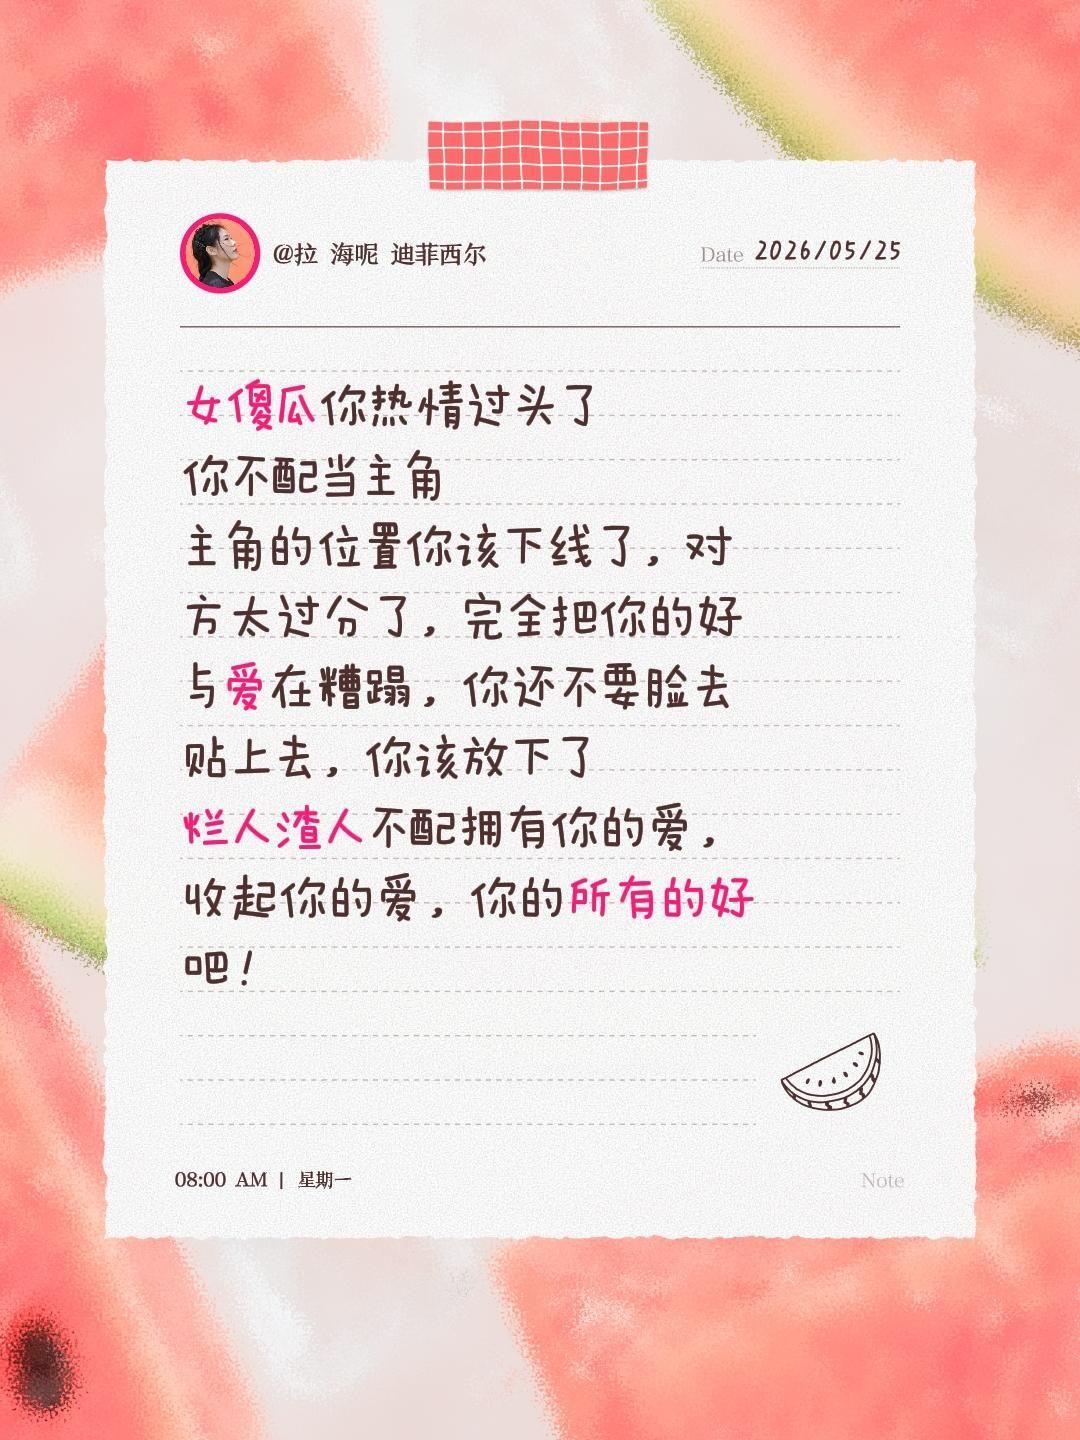 @拉 海呢 迪菲西尔
Date 2026/05/25
女傻瓜你热情过头了
你不配当主角
主角的位置你该下线了，对
方太过分了，完全把你的好
与爱在糟蹋，你还不要脸去
贴上去，你该放下了
烂人渣人不配拥有你的爱，
收起你的爱，你的所有的好
吧！
08:00 AM | 星期一
Note